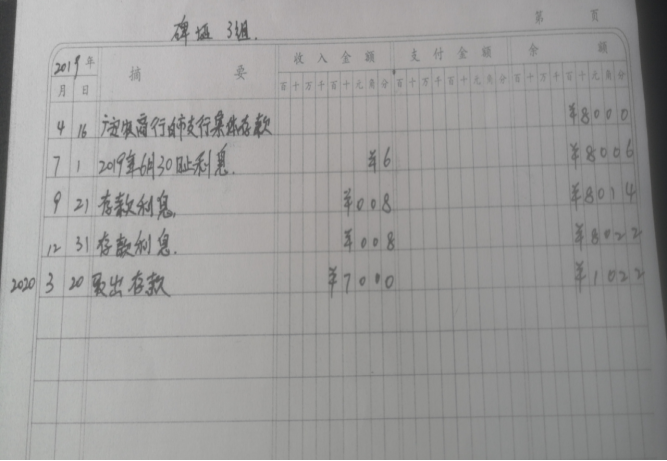 碑垭 3组.
第 页
2019年 摘 要 收入金额 支付金额 余 额
月 日 百十万千百十元角分 百十万千百十元角分 百十万千百十元角分
4 16 行 支行集体存款 ¥8000
7 1 2019年6月30日止利息. ¥6 ¥8006
9 21 存款利息. ¥008 ¥8014
12 31 存款利息. ¥008 ¥8022
2020 3 20 取出存款 ¥7000 ¥1022